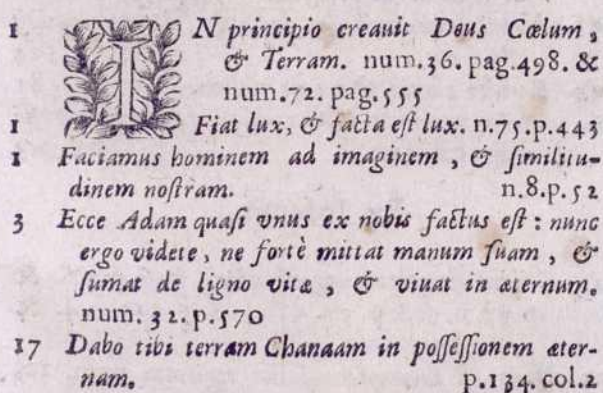 1 IN principio creauit Deus Cœlum,
& Terram. num.36. pag.498. &
num.72. pag.555
1 Fiat lux, & facta eſt lux. n.75.p.443
1 Faciamus hominem ad imaginem, & ſimilitu-
dinem noſtram. n.8.p.52
3 Ecce Adam quaſi vnus ex nobis factus eſt: nunc
ergo videte, ne fortè mittat manum ſuam, &
ſumat de ligno vitæ, & viuat in æternum.
num. 32. p.570
17 Dabo tibi terram Chanaam in poſſeſſionem æter-
nam. p.134. col.2